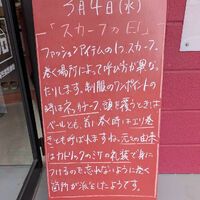 3月4日(水)
「スカーフの日」
ファッションアイテムの1つ スカーフ。
巻く場所によって呼び方が異なっ
たりします。制服のワンポイントの
時はネッカチーフ、頭を覆うときは
ベールとも、首に巻く時はエリ巻
きとも呼ばれますね。元々の由来
はカトリックのミサの礼装で身に
つけるのを忘れないように巻く
箇所が派生したようです。